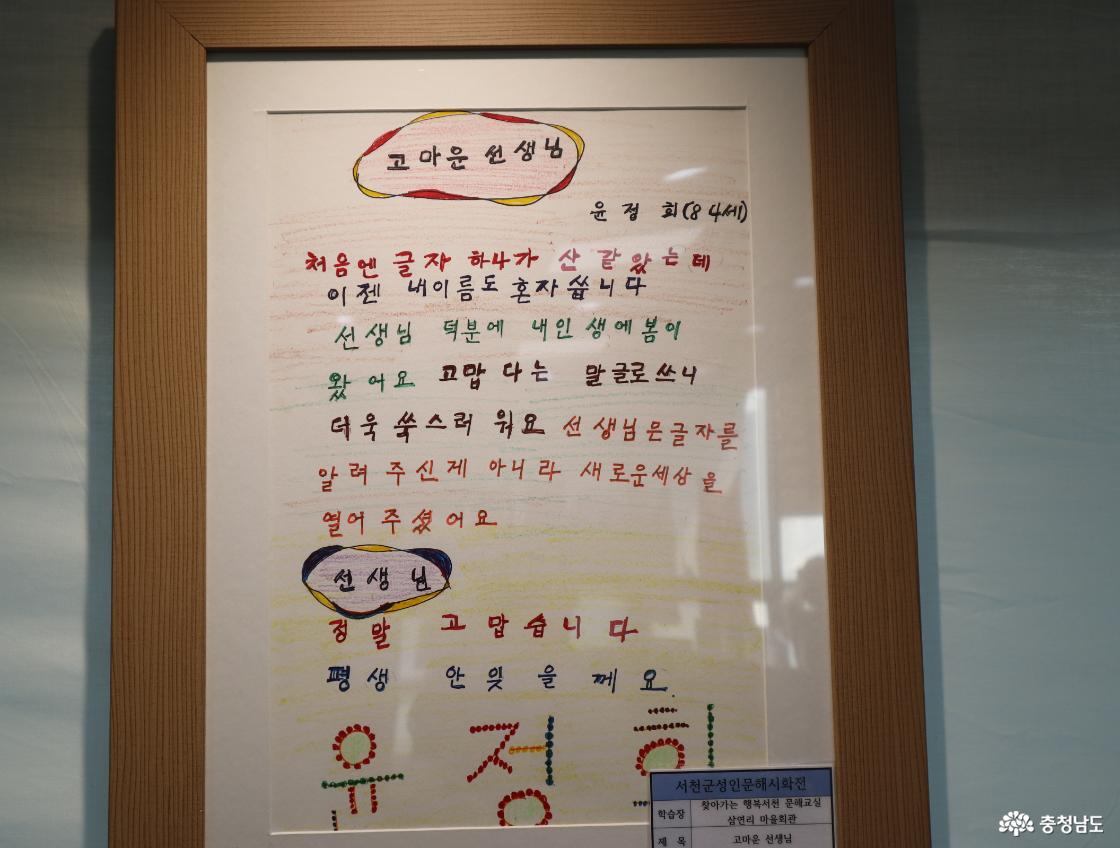 고마운 선생님
윤정희(84세)
처음엔 글자 하나가 산 같았는데
이젠 내이름도 혼자 씁니다
선생님 덕분에 내인생에봄이
왔어요 고맙다는 말글로쓰니
더욱 쑥스러워요 선생님은글자를
알려주신게 아니라 새로운세상을
열어주셨어요
선생님
정말 고맙습니다
평생 안잊을께요.
윤정희
서천군성인문해시화전
학습장 찾아가는 행복서천 문해교실
삼연리 마을회관
제 목 고마운 선생님
충청남도